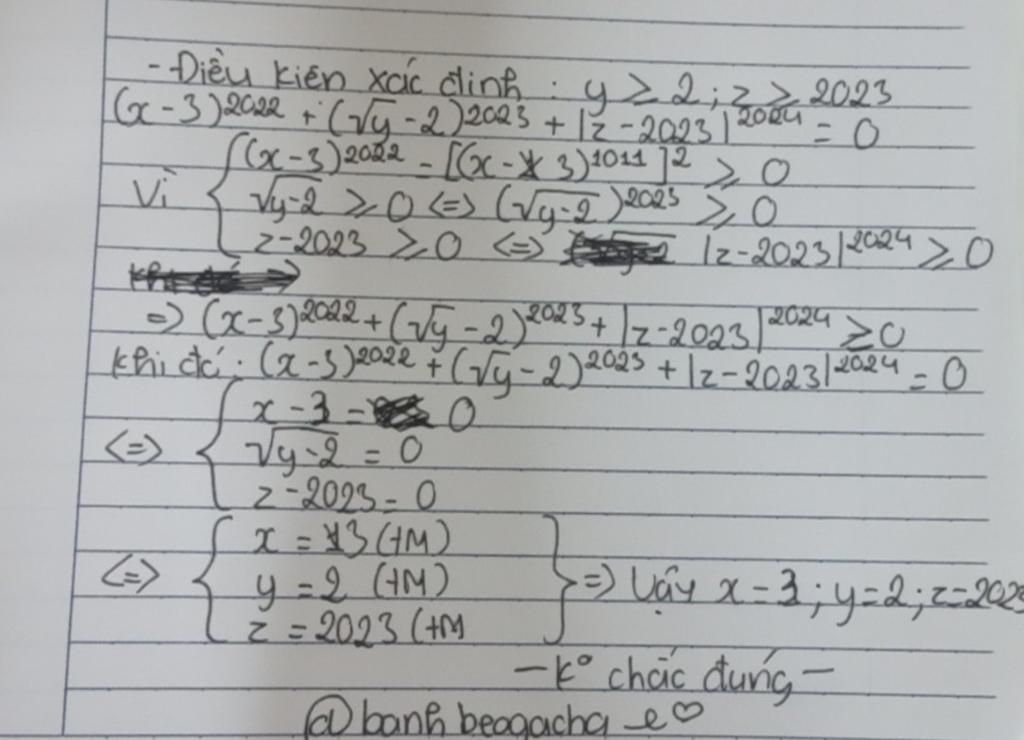 - Điều kiên xác đinh : y ≥ 2 ; z ≥ 2023
(x - 3)^2022 + (√y - 2)^2023 + |z - 2023|^2024 = 0
Vì { (x - 3)^2022 = [(x - 3)^1011]^2 ≥ 0
√y-2 ≥ 0 <=> (√y-2)^2023 ≥ 0
z - 2023 ≥ 0 <=> |z - 2023|^2024 ≥ 0
=> (x - 3)^2022 + (√y - 2)^2023 + |z - 2023|^2024 ≥ 0
khi đó : (x - 3)^2022 + (√y - 2)^2023 + |z - 2023|^2024 = 0
<=> { x - 3 = 0
√y-2 = 0
z - 2023 = 0
<=> { x = 3 (tM)
y = 2 (tM) } => Vậy x = 3 ; y = 2 ; z = 2023
z = 2023 (tM
- k° chắc đúng -
@banh beogacha _e♡